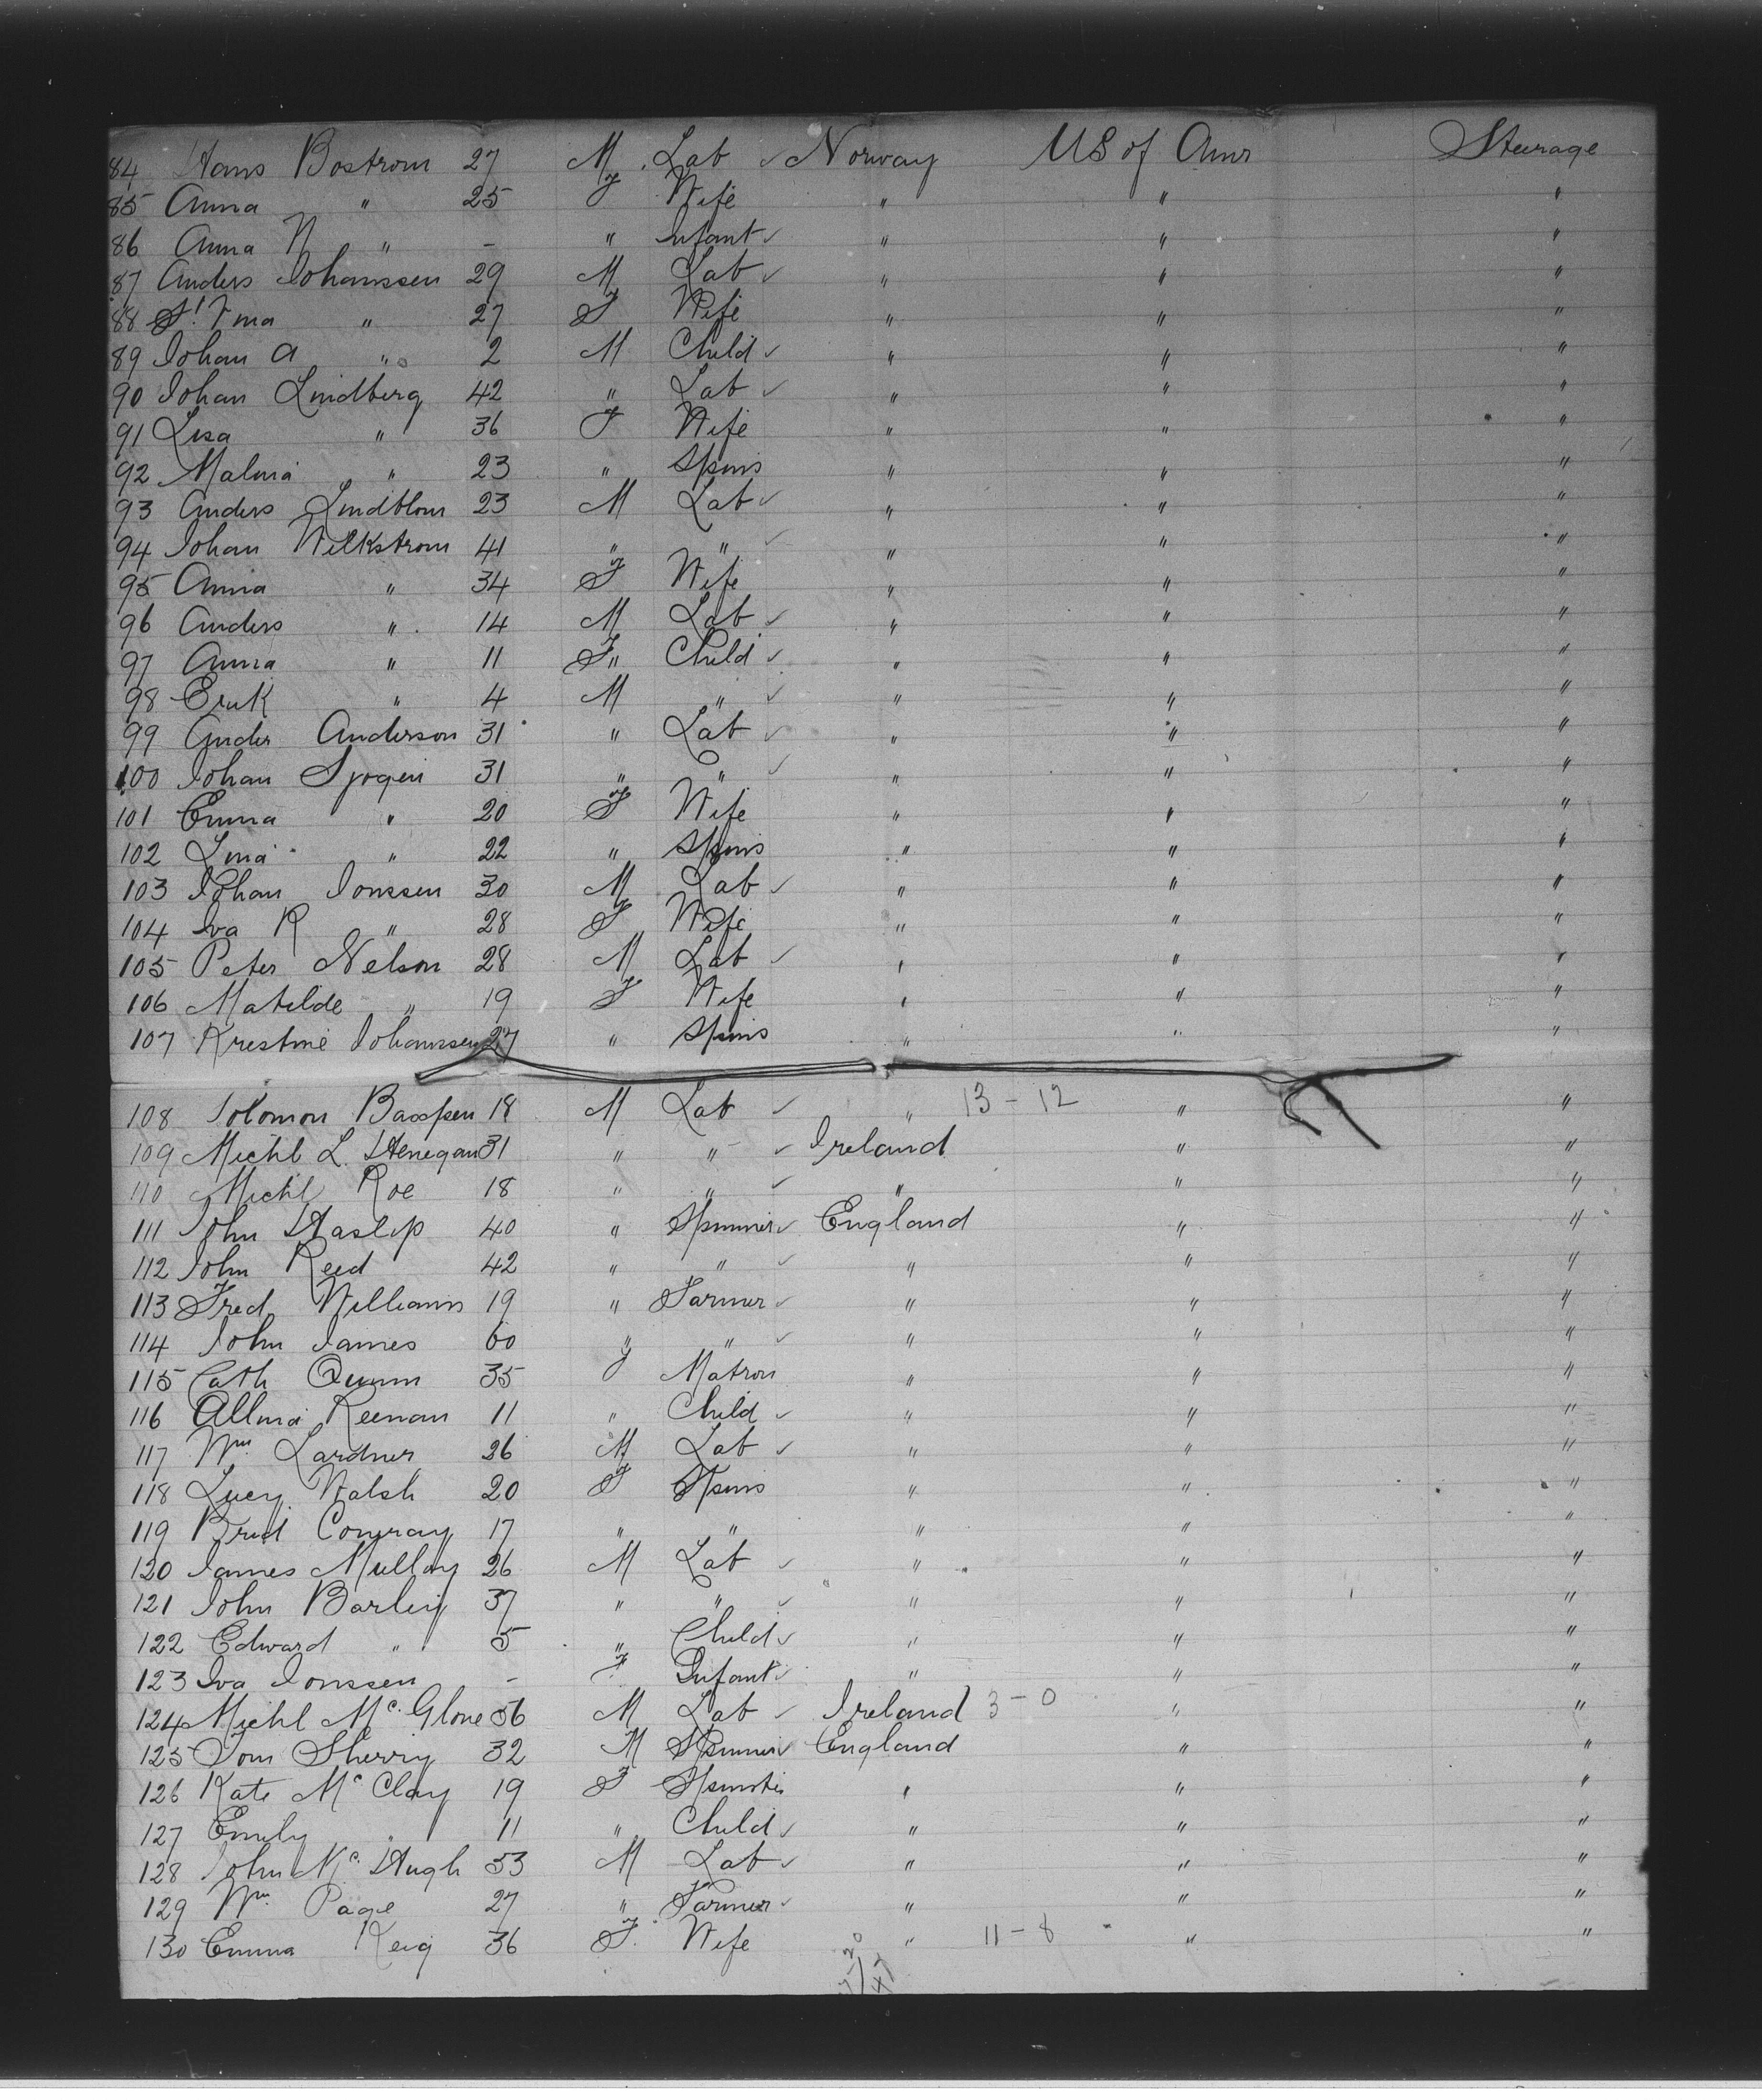 84 Hans Bostrom 27 M Lab ✓ Norway US of Amr Steerage
85 Anna " 25 F Wife " " "
86 Anna N " - " Infant ✓ " " "
87 Anders Johanssen 29 M Lab ✓ " " "
88 " 27 F Wife " " "
89 Johan A " 2 M Child ✓ " " "
90 Johan Lindberg 42 " Lab ✓ " " "
91 Lisa " 36 F Wife " " "
92 Malina " 23 " Spins " " "
93 Anders Lindblom 23 M Lab ✓ " " "
94 Johan Wilkstrom 41 " " ✓ " " "
95 Anna " 34 F Wife " " "
96 Anders " 14 M Lab ✓ " " "
97 Anna " 11 F " Child ✓ " " "
98 Erik " 4 M " ✓ " " "
99 Ander Anderson 31 " Lab ✓ " " "
100 Johan Sjogen 31 " " ✓ " " "
101 Emma " 20 F Wife " " "
102 Lina " 22 " Spins " " "
103 Johan Jonssen 30 M Lab ✓ " " "
104 Iva K " 28 F Wife " " "
105 Peter Nelson 28 M Lab ✓ " " "
106 Matilde " 19 F Wife " " "
107 Krestine Johanssen 27 " Spins " " "
108 Solomon 18 M Lab ✓ " 13-12 " "
109 Michl L. Henegan 31 " " ✓ Ireland " "
110 Michl Roe 18 " " ✓ " " "
111 John Haslip 40 " Spinner ✓ England " "
112 John Reed 42 " " ✓ " " "
113 Fred Williams 19 " Farmer ✓ " " "
114 John James 60 " " ✓ " " "
115 Cath Quinn 35 F Matron " " "
116 Keenan 11 " Child ✓ " " "
117 Wm Lardner 26 M Lab ✓ " " "
118 Lucy Walsh 20 F Spins " " "
119 Brid Conray 17 " " " " "
120 James Mullay 26 M Lab ✓ " " "
121 John Barley 37 " " ✓ " " "
122 Edward " 5 " Child ✓ " " "
123 Iva Jonssen - F Infant ✓ " " "
124 Michl McGlone 56 M Lab ✓ Ireland 3-0 " "
125 Tom Sherry 32 M Spinner ✓ England " "
126 Kate McClay 19 F Spinster " " "
127 Emily " 11 " Child ✓ " " "
128 John McHugh 53 M Lab ✓ " " "
129 Wm Page 27 " Farmer ✓ " " "
130 Emma Keig 36 F. Wife " 11-8 " "